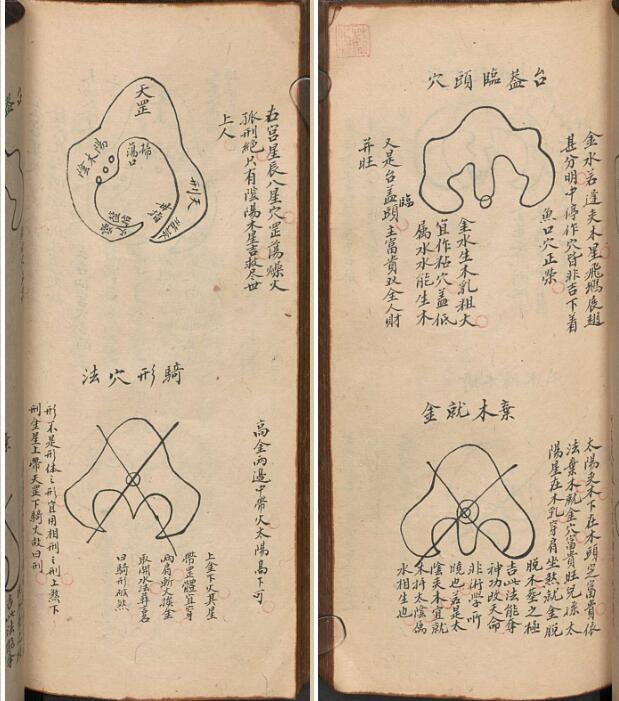 台葢臨頭穴
金水若逢夾木星飛鴉展翅
甚分明中停作穴皆非吉下着
魚口穴正榮
金水生木乳粗大
宜作粘穴盖低
属水水能生木
又是台盖臨頭主富貴双全人財
并旺
棄木就金
太陽夾木下在木頭定富貴依
法棄木就金穴富貴旺兒孫太
陽星在木乳穿肩坐煞就金脫
脫木垂之極
吉此法能奪
神功改天命
非術學所
曉也若是太
陰夾木宜就
木將太陰属
水相生也
右宫星辰八星穴罡蕩燥火
孤刑絕只有陰陽木星吉救尽世
上人
天罡
天刑
陽木
陰
騎形穴法
高金兩邊中帶火太陽高下可
上金下火其星
帶罡體宜穿
兩肩斬火挨金
取開水法葬名
曰騎形破煞
形不是形体之形宜用相刑之刑上煞下
刑金星上帶天罡下騎火故曰刑